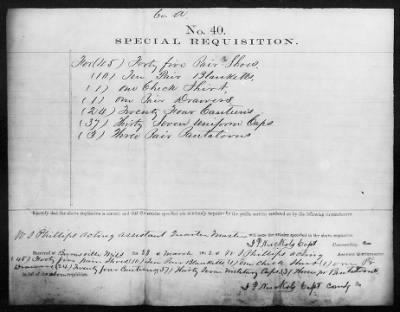 Co. A
No. 40.
SPECIAL REQUISITION.
For (45) Forty five Pair Shoes
(10) Ten Pair Blankets,
(1) one Check Shirt,
(1) one Pair Drawers
(24) Twenty Four Canteens
(37) Thirty Seven Uniform Caps
(3) Three Pair Pantaloons
I certify that the above requisition is correct; and that the articles specified are absolutely requisite for the public service
W J Phillips acting assistant Quarter Master will issue the articles specified in the above requisition.
Capt Commanding
Received at Mills 28 March of W J Phillips acting
(45) Forty five pair Shoes (10) Ten Pair Blankets (1) one Check Shirt (1) one Pr
Drawers (24) Twenty four Canteens (37) Thirty Seven military Caps (3) Three pr Pantaloons
in full of the above requisition.
Capt Comdg Co